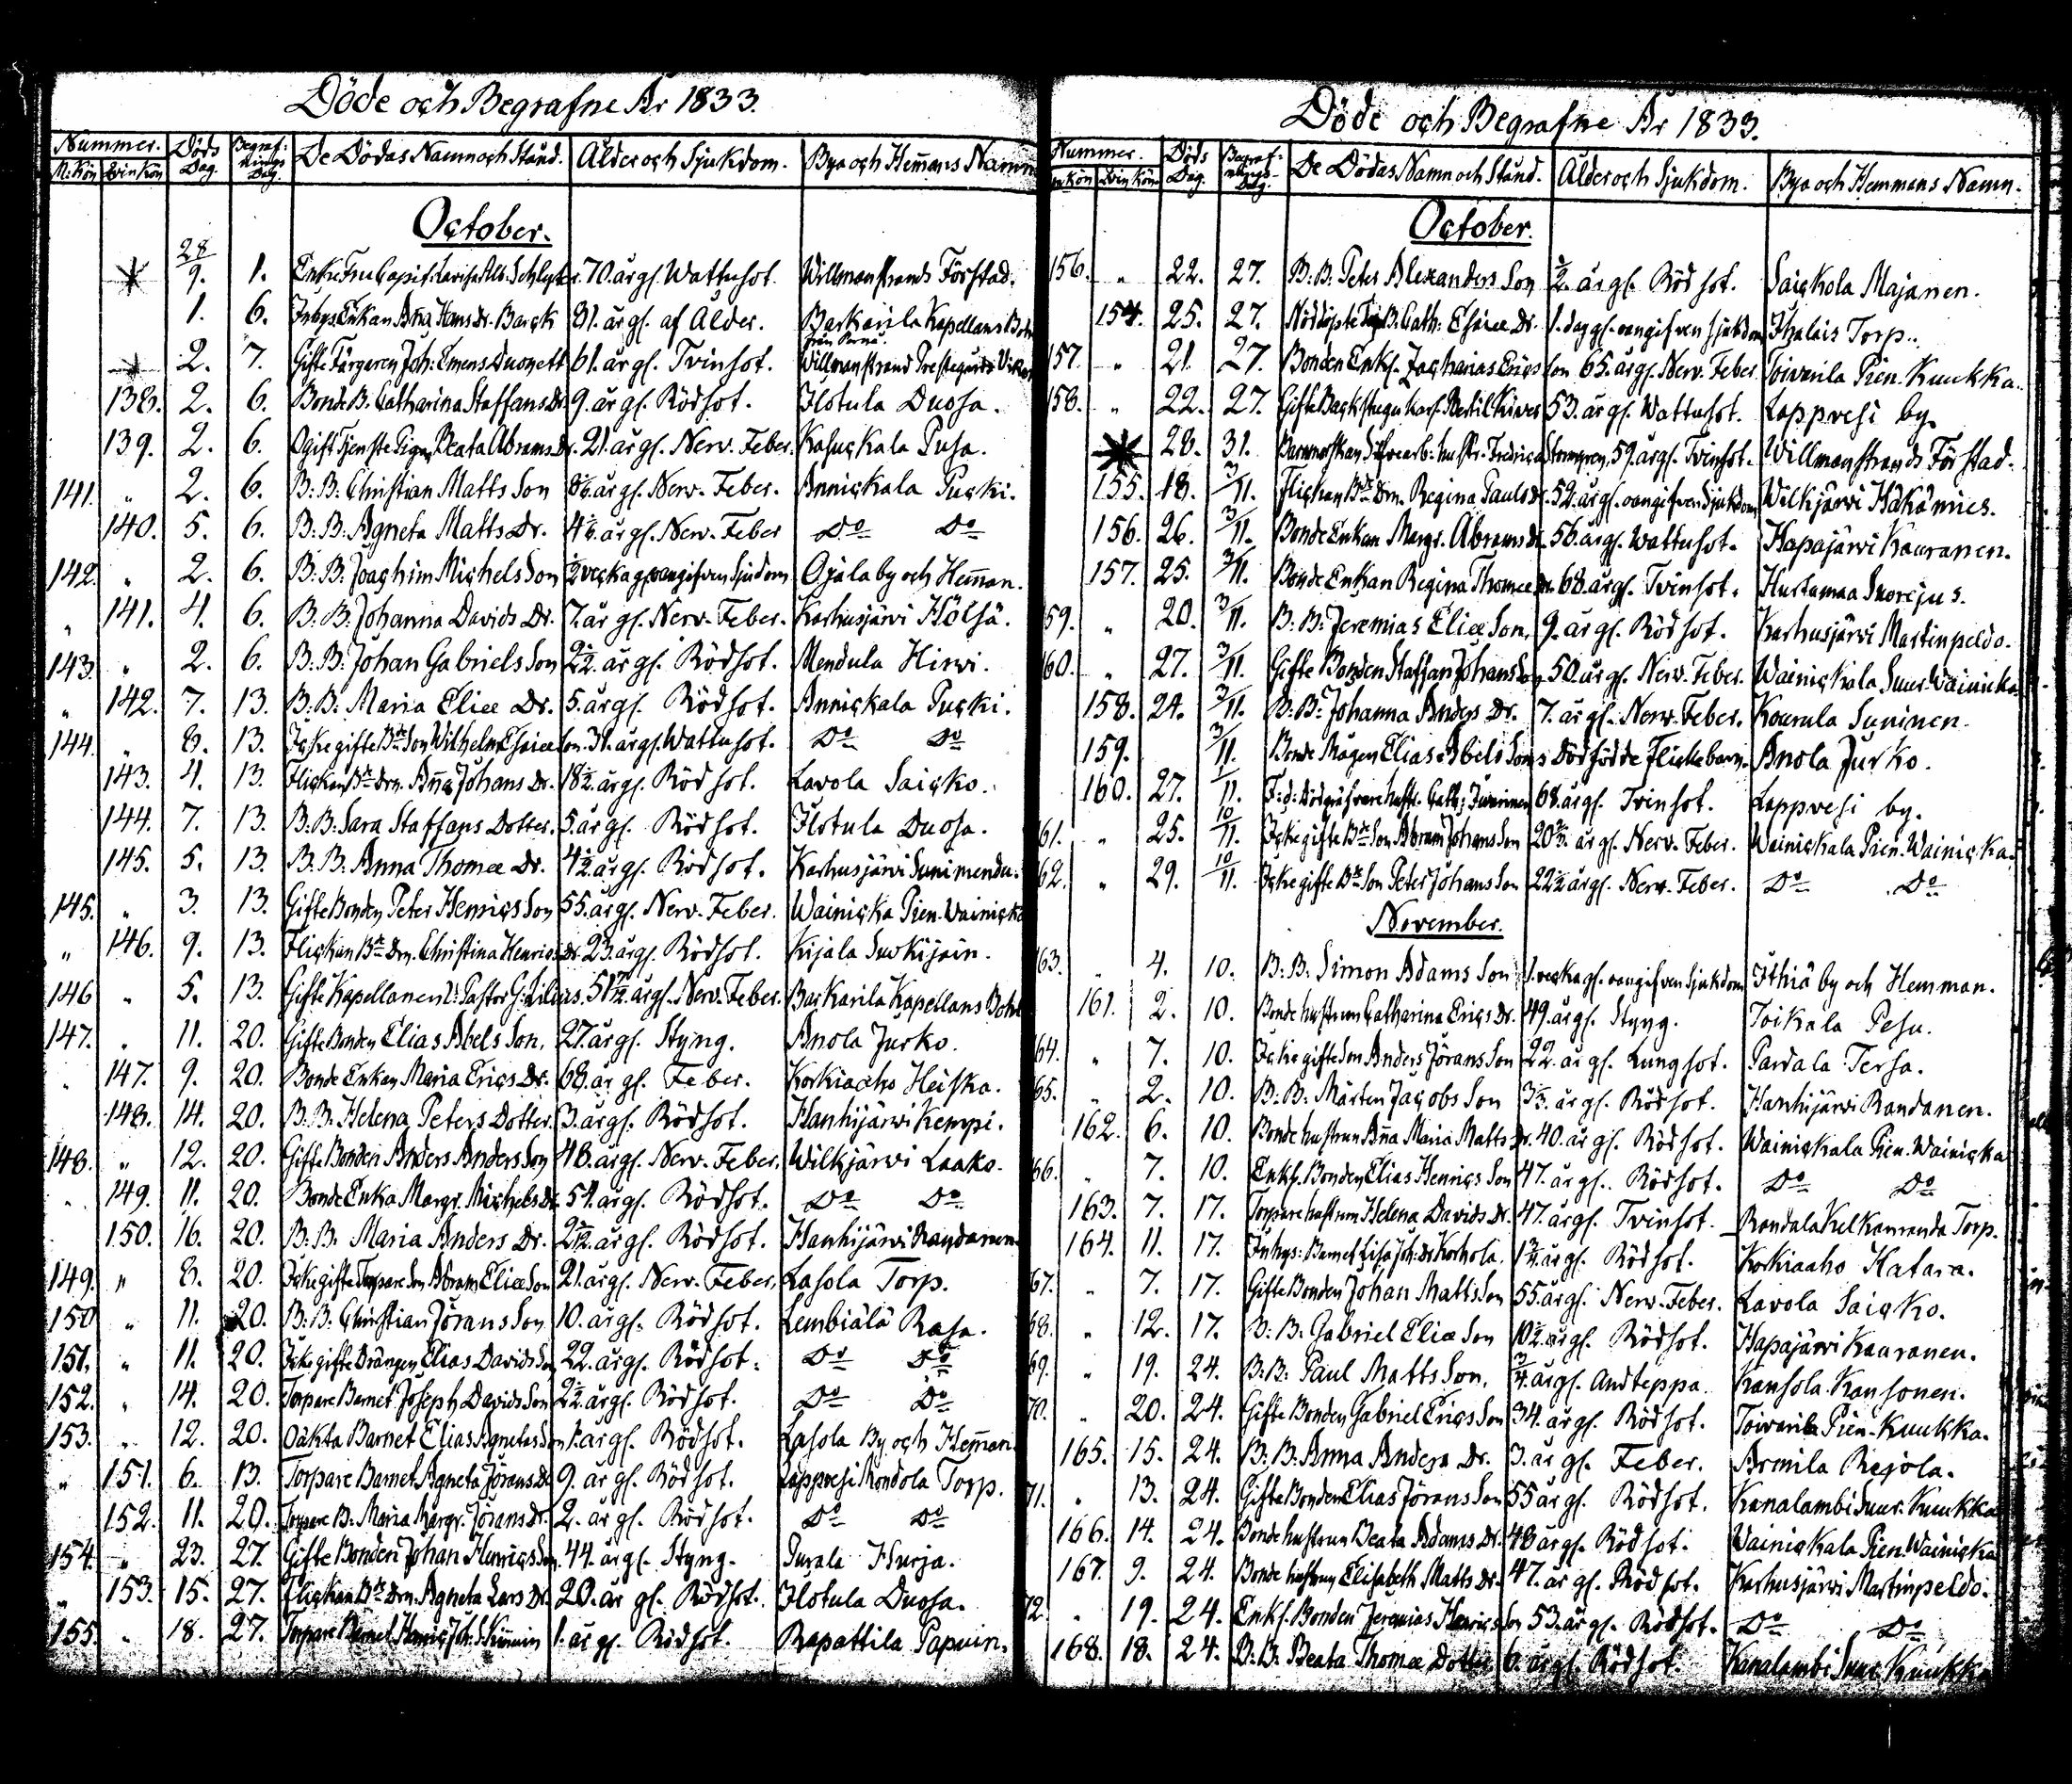 Döde och Begrafne År 1833.
Nummer. Döds Dag. Begraf:nings Dag. De Dödas Namn och Stånd. Ålder och Sjukdom. Bya och Hemans Namn
M:Kön Qvin Kön
October.
28/9. 1. Enke Fru 70. år gl. Wattusot. Willmanstrands Förstad.
1. 6. Inhys Enkan Anna Hans Dr. Barck 81. år gl. af Ålder. Barkarila Kapellans Bohl
2. 7. Gifte Färgaren Joh: 61. år gl. Tvinsot. Willmanstrand
138. 2. 6. Bonde B. Catharina Staffans Dr. 9. år gl. Rödsot. Ilotula Duosa.
139. 2. 6. Ogift Tjenste Pigan Beata Abrams Dr. 21. år gl. Nerv. Feber. Kasuckala Pusa.
141. " 2. 6. B. B. Christian Matts Son 8 1/6. år gl. Nerv. Feber. Annickala Pucki.
140. 5. 6. B. B. Agneta Matts Dr. 4 1/6. år gl. Nerv. Feber Do Do
142. " 2. 6. B. B. Joachim Michels Son 1/2 vecka gl. oangifven Sjudom Ojala by och Heman.
" 141. 4. 6. B. B. Johanna Davids Dr. 7. år gl. Nerv. Feber. Karhusjärvi Hölsä.
143. " 2. 6. B. B. Johan Gabriels Son 2 1/2. år gl. Rödsot. Mendula Hirvi.
" 142. 7. 13. B. B. Maria Eliæ Dr. 5. år gl. Rödsot. Annickala Pucki.
144. " 8. 13. Icke gifte Bde Son Wilhelm Esaiæ Son. 31. år gl. Wattusot. Do Do
143. 4. 13. Flickan Bde Drn. Anna Johans Dr. 18 1/2. år gl. Rödsot. Lavola Saicko.
144. 7. 13. B. B. Sara Staffans Dotter. 5. år gl. Rödsot. Ilotula Duosa.
145. 5. 13. B. B. Anna Thomæ Dr. 4 1/2. år gl. Rödsot. Karhusjärvi Sunimendu.
145. " 3. 13. Gifte Bonden Peter Henrics Son 55. år gl. Nerv. Feber. Wainicka Pien. Wainicka
" 146. 9. 13. Flickan Bde Drn. Christina Henrics Dr. 23. år gl. Rödsot. Kijala Surkijain.
146 " 5. 13. Gifte Kapellanen V. Pastor G. Lilius. 51 år gl. Nerv. Feber. Barkarila Kapellans Bohl
147. " 11. 20. Gifte Bonden Elias Abels Son. 27. år gl. Styng. Anola Jurko.
" 147. 9. 20. Bonde Enkan Maria Erics Dr. 68. år gl. Feber. Korkiaoho Heiska.
148. 14. 20. B. B. Helena Peters Dotter. 3. år gl. Rödsot. Hanhijärvi Kempi.
148. " 12. 20. Gifte Bonden Anders Anders Son 48. år gl. Nerv. Feber. Wilkjärvi Laako.
" 149. 11. 20. Bonde Enka Margr. Michels Dr. 54. år gl. Rödsot. Do Do
150. 16. 20. B. B. Maria Anders Dr. 2 1/2. år gl. Rödsot. Hanhijärvi Randanen
149. " 8. 20. Icke gifte Torpare Son Abram Eliæ Son 21. år gl. Nerv. Feber. Lasola Torp.
150 " 11. 20. B. B. Christian Jörans Son 10. år gl. Rödsot. Lembiälä Rasa.
151. " 11. 20. Icke gifte Drängen Elias Davids Son 22. år gl. Rödsot. Do Do
152. " 14. 20. Torpare Barnet Joseph Davids Son 2 1/2. år gl. Rödsot. Do Do
153. " 12. 20. Oäkta Barnet Elias Agnetas Son 1. år gl. Rödsot. Lasola By och Heman.
" 151. 6. 13. Torpare Barnet Agneta Jörans Dr. 9. år gl. Rödsot. Lappvesi Rondola Torp.
152. 11. 20. Torpare B: Maria Margr. Jörans Dr. 2. år gl. Rödsot. Do Do
154. " 23. 27. Gifte Bonden Johan Henrics Son. 44. år gl. Styng. Purala Hurja.
" 153. 15. 27. Flickan Bde Drn. Agneta Lars Dr. 20. år gl. Rödsot. Ilotula Duosa.
155. " 18. 27. Torpare Barnet Henric Joh: S. 1. år gl. Rödsot. Rapattila Papuin.
Döde och Begrafne År 1833.
Nummer. Döds Dag. Begraf:nings-Dag. De Dödas Namn och Stånd. Ålder och Sjukdom. Bya och Hemmans Namn.
M:Kön Qvin Kön
October.
156. " 22. 27. B: B. Peter Alexanders Son 1/2. år gl. Rödsot. Saickola Majanen.
154. 25. 27. Nöddöpte B. Cath: Esaiæ Dr. 1. dag gl. oangifven sjukdom Ihalais Torp.
157. " 21. 27. Bonden Enkl. Zacharias Erics Son 65. år gl. Nerv. Feber. Toivarila Pien. Kuukka.
158. " 22. 27. Gifte Backstugu Karl. Bertil Kives 53. år gl. Wattusot. Lappvesi by.
28. 31. Fredrica Stormgren, 59. år gl. Tvinsot. Willmanstrands Förstad.
155. 18. 3/11. Flickan Bde Drn. Regina Pauls Dr. 52. år gl. oangifven Sjukdom Wilkjärvi Häkämies.
156. 26. 3/11. Bonde Enkan Margr. Abrams Dr. 56. år gl. Wattusot. Hapajärvi Kauranen.
157. 25. 3/11. Bonde Enkan Regina Thomæ Dr. 68. år gl. Tvinsot. Hurtamaa Suorejus.
159. " 20. 3/11. B: B: Jeremias Eliæ Son. 9. år gl. Rödsot. Karhusjärvi Martinpeldo.
160. " 27. 3/11. Gifte Bonden Staffan Johans Son 50. år gl. Nerv. Feber. Wainickala Suur. Wainicka
158. 24. 3/11. B: B: Johanna Anders Dr. 7. år gl. Nerv. Feber. Kourula Suninen.
159. 3/11. Bonde Mågen Elias Abels Sons Dödfödde Flickebarn. Anola Jurko.
160. 27. 11. F: d: Dödgräfvare hustr. Cath: Iivarinen 68. år gl. Tvinsot. Lappvesi by.
161. " 25. 10/11. Icke gifte Bde Son Abram Johans Son 20 år gl. Nerv. Feber. Wainickala Pien. Wainicka.
162. " 29. 10/11. Icke gifte Bde Son Peter Johans Son 22 1/2 år gl. Nerv. Feber. Do Do
November.
163. " 4. 10. B: B: Simon Adams Son 1. vecka gl. oangifven Sjukdom Ithiä by och Hemman.
161. 2. 10. Bonde hustrun Catharina Erics Dr. 49. år gl. Styng. Toikala Pesu.
164. " 7. 10. Icke gifte Son Anders Jörans Son 22. år gl. Lungsot. Pardala Tersa.
165. " 2. 10. B. B: Mårten Jacobs Son 3 1/3. år gl. Rödsot. Hanhijärvi Randanen.
162. 6. 10. Bonde hustrun Anna Maria Matts Dr. 40. år gl. Rödsot. Wainickala Pien. Wainicka
166. " 7. 10. Enkl. Bonden Elias Henrics Son 47. år gl. Rödsot. Do Do
163. 7. 17. Torpare hustrun Helena Davids Dr. 47. år gl. Tvinsot. Rondala Torp.
164. 11. 17. Inhys: Barnet Lisa Joh: Dr Korhola. 1 år gl. Rödsot. Korkiaaho Katara.
167. " 7. 17. Gifte Bonden Johan Matts Son 55. år gl. Nerv. Feber. Lavola Saicko.
168. " 12. 17. B: B: Gabriel Eliæ Son 10 1/2. år gl. Rödsot. Hapajärvi Kauranen.
169. " 19. 24. B: B: Paul Matts Son. 3/4. år gl. Andteppa. Kansola Kansonen.
170. " 20. 24. Gifte Bonden Gabriel Erics Son 34. år gl. Rödsot. Toivarila Pien. Kuukka.
165. 15. 24. B. B. Anna Anders Dr. 3. år gl. Feber. Armila Rejola.
171. " 13. 24. Gifte Bonden Elias Jörans Son 55 år gl. Rödsot. Kanalambi Suur. Kuukka
166. 14. 24. Bonde hustrun Beata Adams Dr. 48 år gl. Rödsot. Wainickala Pien. Wainicka
167. 9. 24. Bonde hustrun Elisabeth Matts Dr. 47. år gl. Rödsot. Karhusjärvi Martinpeldo.
172. " 19. 24. Enkl. Bonden Jeremias Henrics Son 53. år gl. Rödsot. Do Do
168. 18. 24. B. B. Beata Thomæ Dotter. 6. år gl. Rödsot. Kanalambi Suur Kuukka